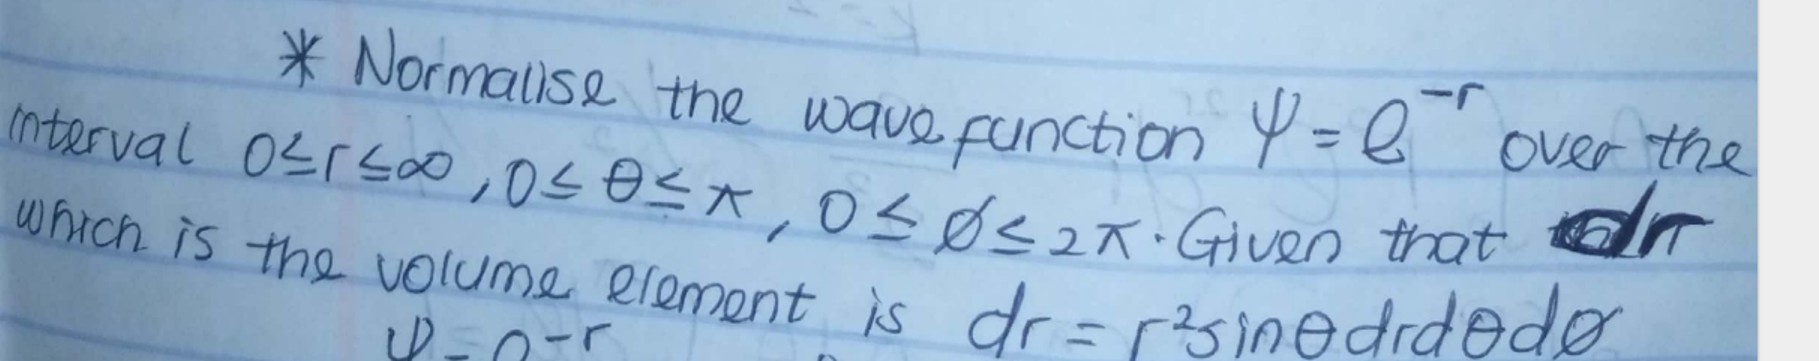 * Normalise the wave function ψ = e^-r over the
interval 0≤r≤∞, 0≤θ≤π, 0≤ø≤2π. Given that dr
which is the volume element is dr = r²sinθdrdθdø
ψ = e^-r